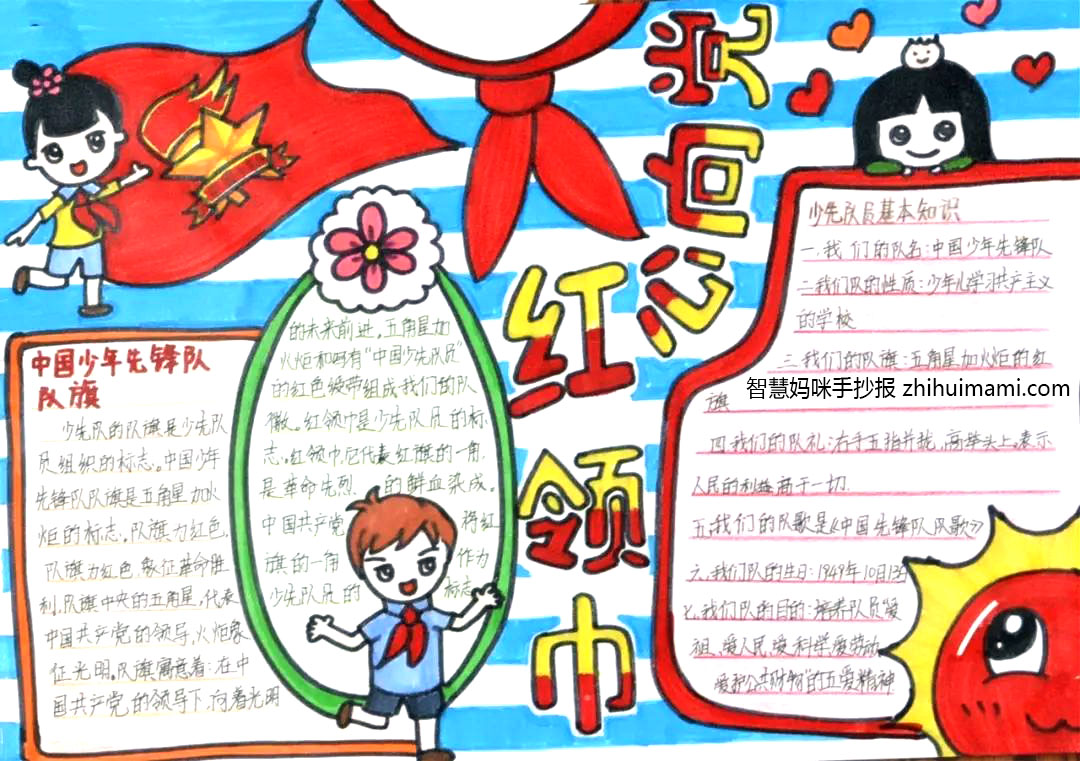 红领巾
心向党
中国少年先锋队
队旗
少先队的队旗是少先队
员组织的标志。中国少年
先锋队队旗是五角星加火
炬的标志。队旗为红色,
队旗为红色,象征革命胜
利,队旗中央的五角星,代表
中国共产党的领导,火炬象
征光明。队旗寓意着:在中
国共产党的领导下,向着光明
的未来前进,五角星加
火炬和写有“中国少先队员”
的红色绶带组成我们的队
徽。红领巾是少先队员的标
志。红领巾,它代表红旗的一角,
是革命先烈 的鲜血染成。
中国共产党 将红
旗的一角 作为
少先队员的 标志
少先队员基本知识
一.我们的队名:中国少年先锋队
二.我们队的性质:少年儿学习共产主义
的学校
三.我们的队旗:五角星加火炬的红
旗
智慧妈咪手抄报 zhihuimami.com
四.我们的队礼:右手五指并拢,高举头上。表示
人民的利益高于一切.
五.我们的队歌是《中国先锋队队歌》
六.我们队的生日:1949年10月13
七.我们队的目的:培养队员爱
祖、爱人民、爱科学爱劳动、
爱护公共财物的五爱精神